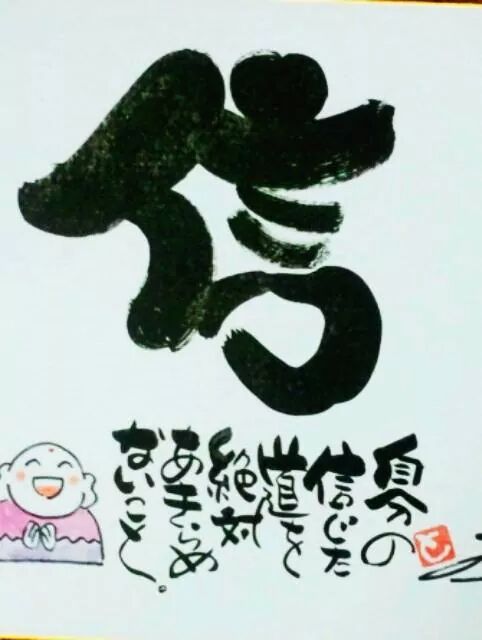 信
自分の
信じた
道を
絶対
あきらめ
ないこと。
と